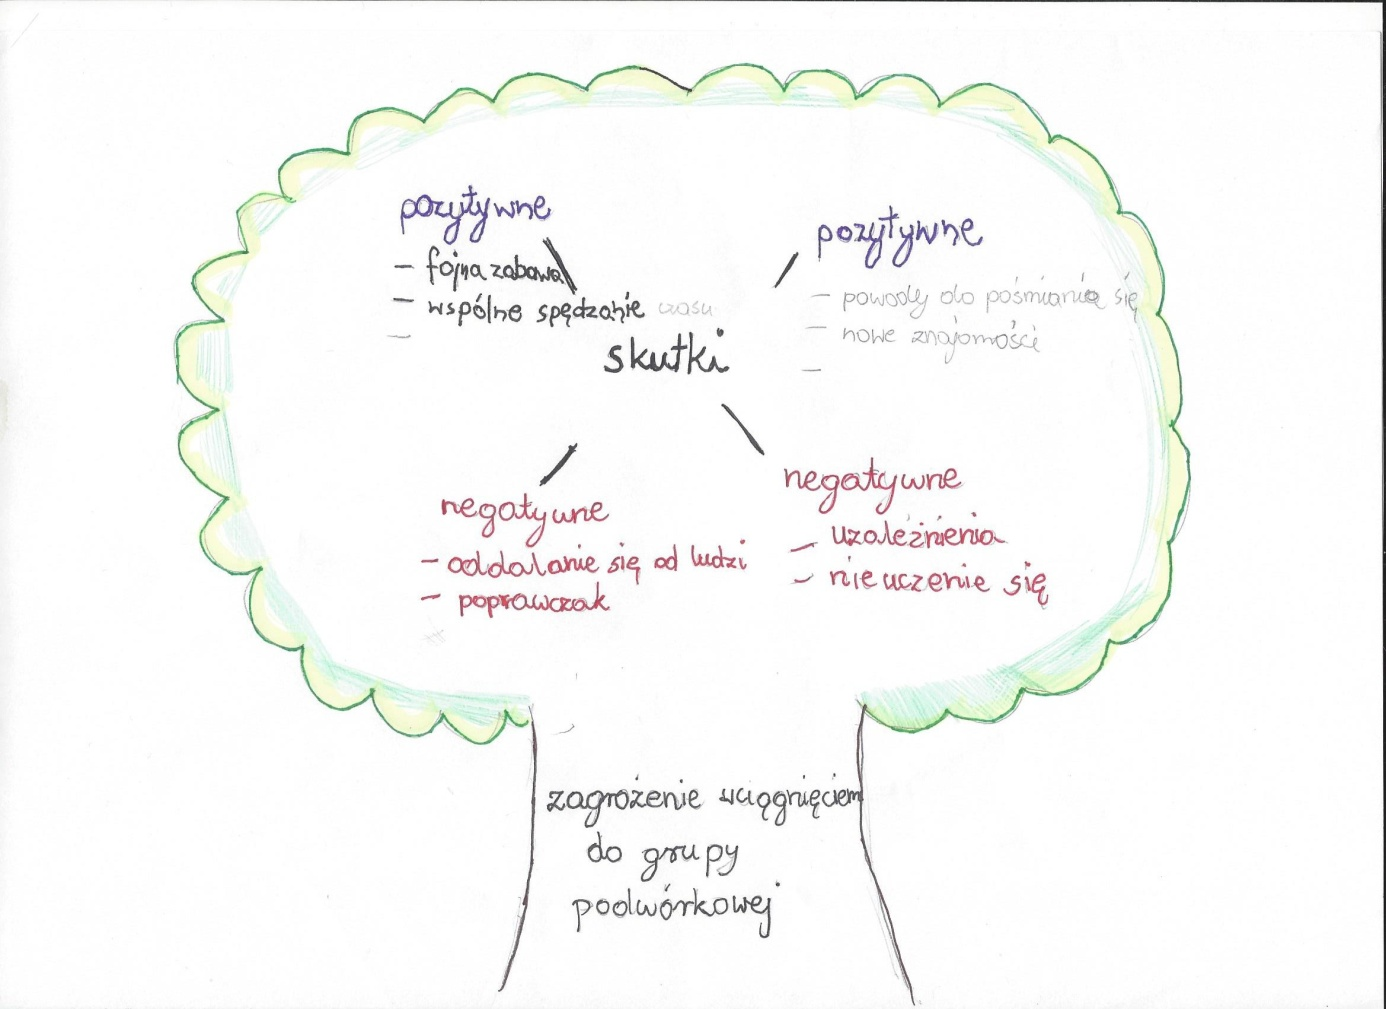 pozytywne
- fajna zabawa
- wspólne spędzanie czasu
-
pozytywne
- powody do pośmiania się
- nowe znajomości
-
skutki
negatywne
- oddalanie się od ludzi
- poprawczak
negatywne
- uzależnienia
- nieuczenie się
zagrożenie wciągnięciem
do grupy
podwórkowej